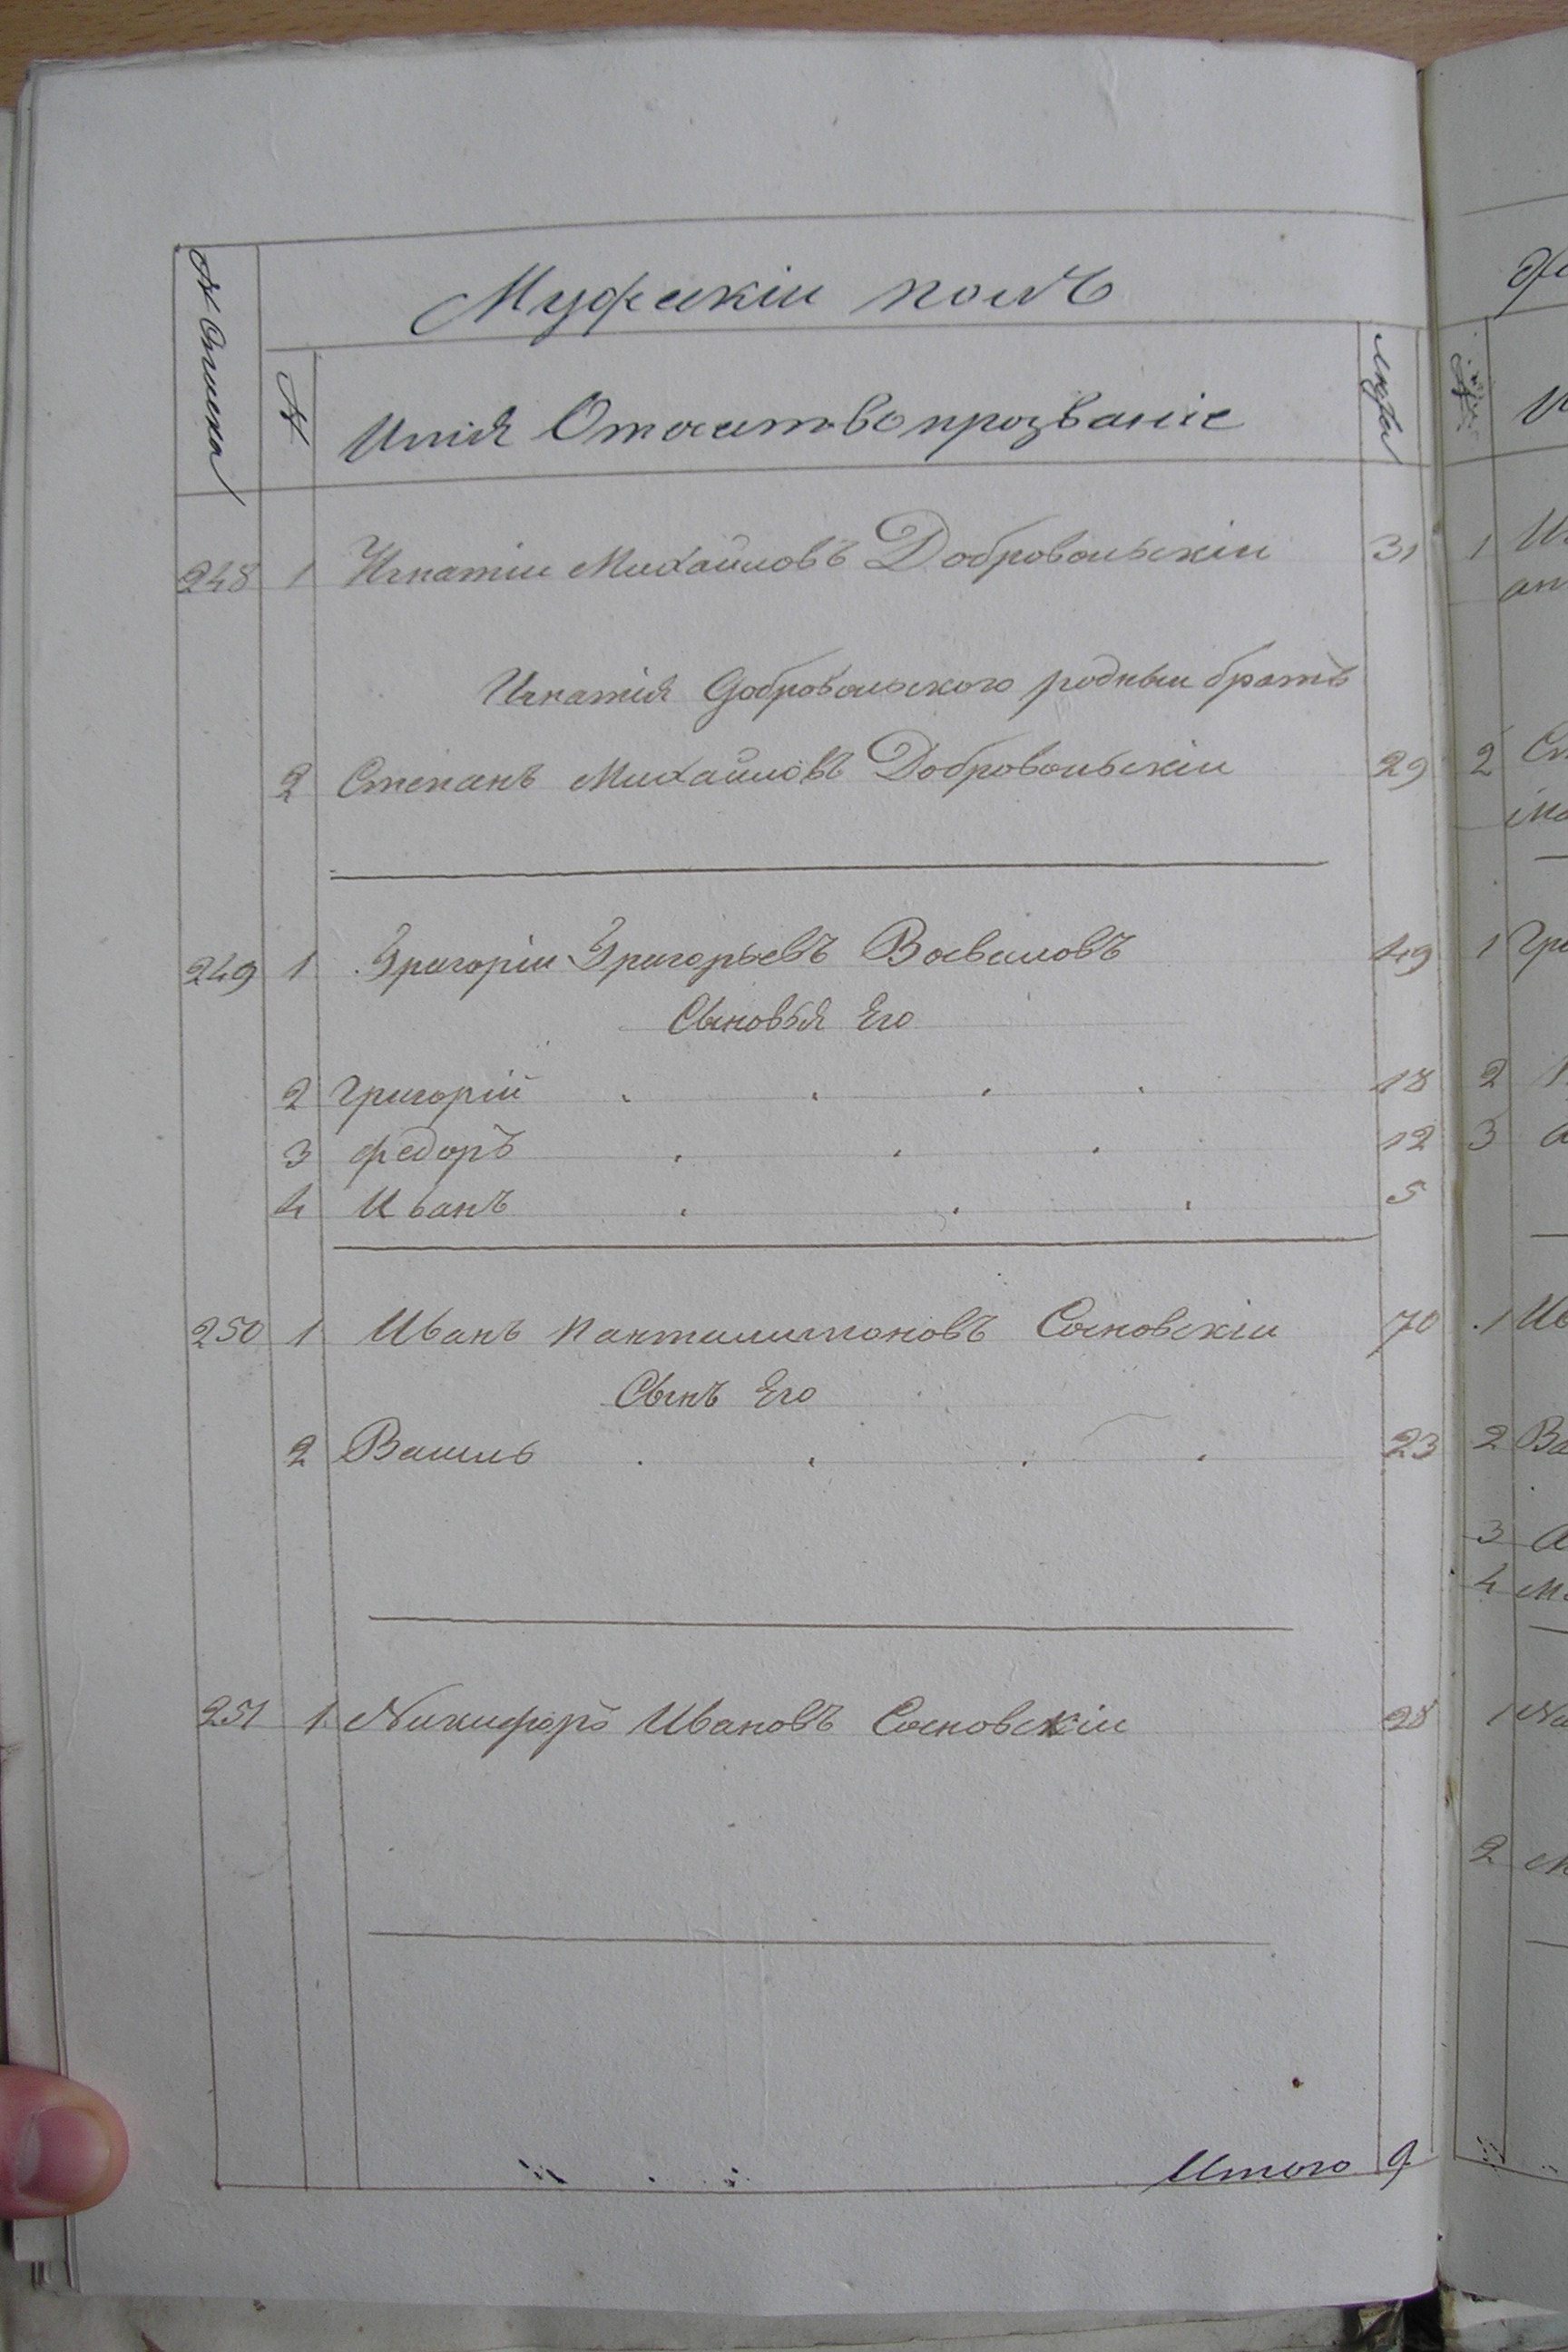 Мужескіи полъ
№ Списка
№
Имія Отечитво прозваніе
лѣта
248 1 Игнатіи Михайловъ Добровольскіи 31
Игнатія Добровольского родныи братъ
2 Степанъ Михайловъ Добровольскіи 29
249 1 Григоріи Григорьевъ 49
Сыновья Его
2 Григорій 18
3 федоръ 12
4 Иванъ 5
250 1 Иванъ Пантилимоновъ Сосновскіи 70
Сынъ Его
2 Василь 23
251 1 Никифоръ Ивановъ Сосновскіи 28
Итого 9
1
2
1
2
3
1
2
3
4
1
2